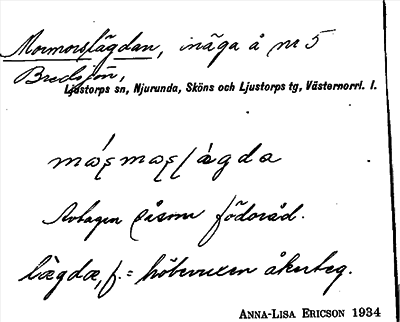 Mormorslägdan, inäga å nr 5
Bredsjön,
Ljustorps sn, Njurunda, Sköns och Ljustorps tg, Västernorrl. l.
Avtagen såsom födoråd.
lägda, f. = höbevuxen åkerteg.
ANNA-LISA ERICSON 1934